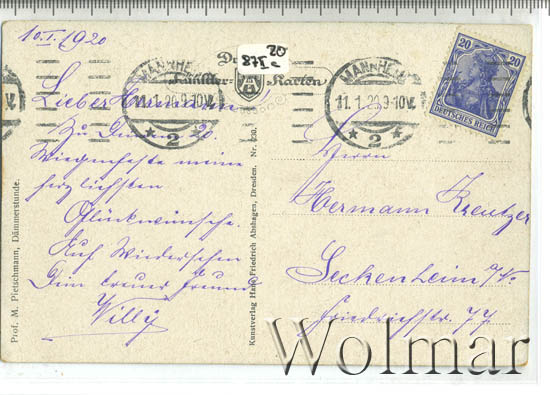 10.I.1920
20
875c
Künstler-Karten
MANNHEIM
11.1.20.9-10V.
* 2 *
MANNHEIM
11.1.20.9-10V.
* 2 *
20 20
DEUTSCHES REICH
Lieber Hermann
Zu Deinem 20.
Wiegenfeste meine
herzlichsten
Glückwünsche.
Auf Wiedersehen
Dein treuer Freund
Willy
Herrn
Hermann Kreutzer
Seckenheim a/N.
Friedrichstr. 77
Prof. M. Pietschmann, Dämmerstunde.
Kunstverlag Hans Friedrich Abshagen, Dresden. Nr. 230.
Wolmar